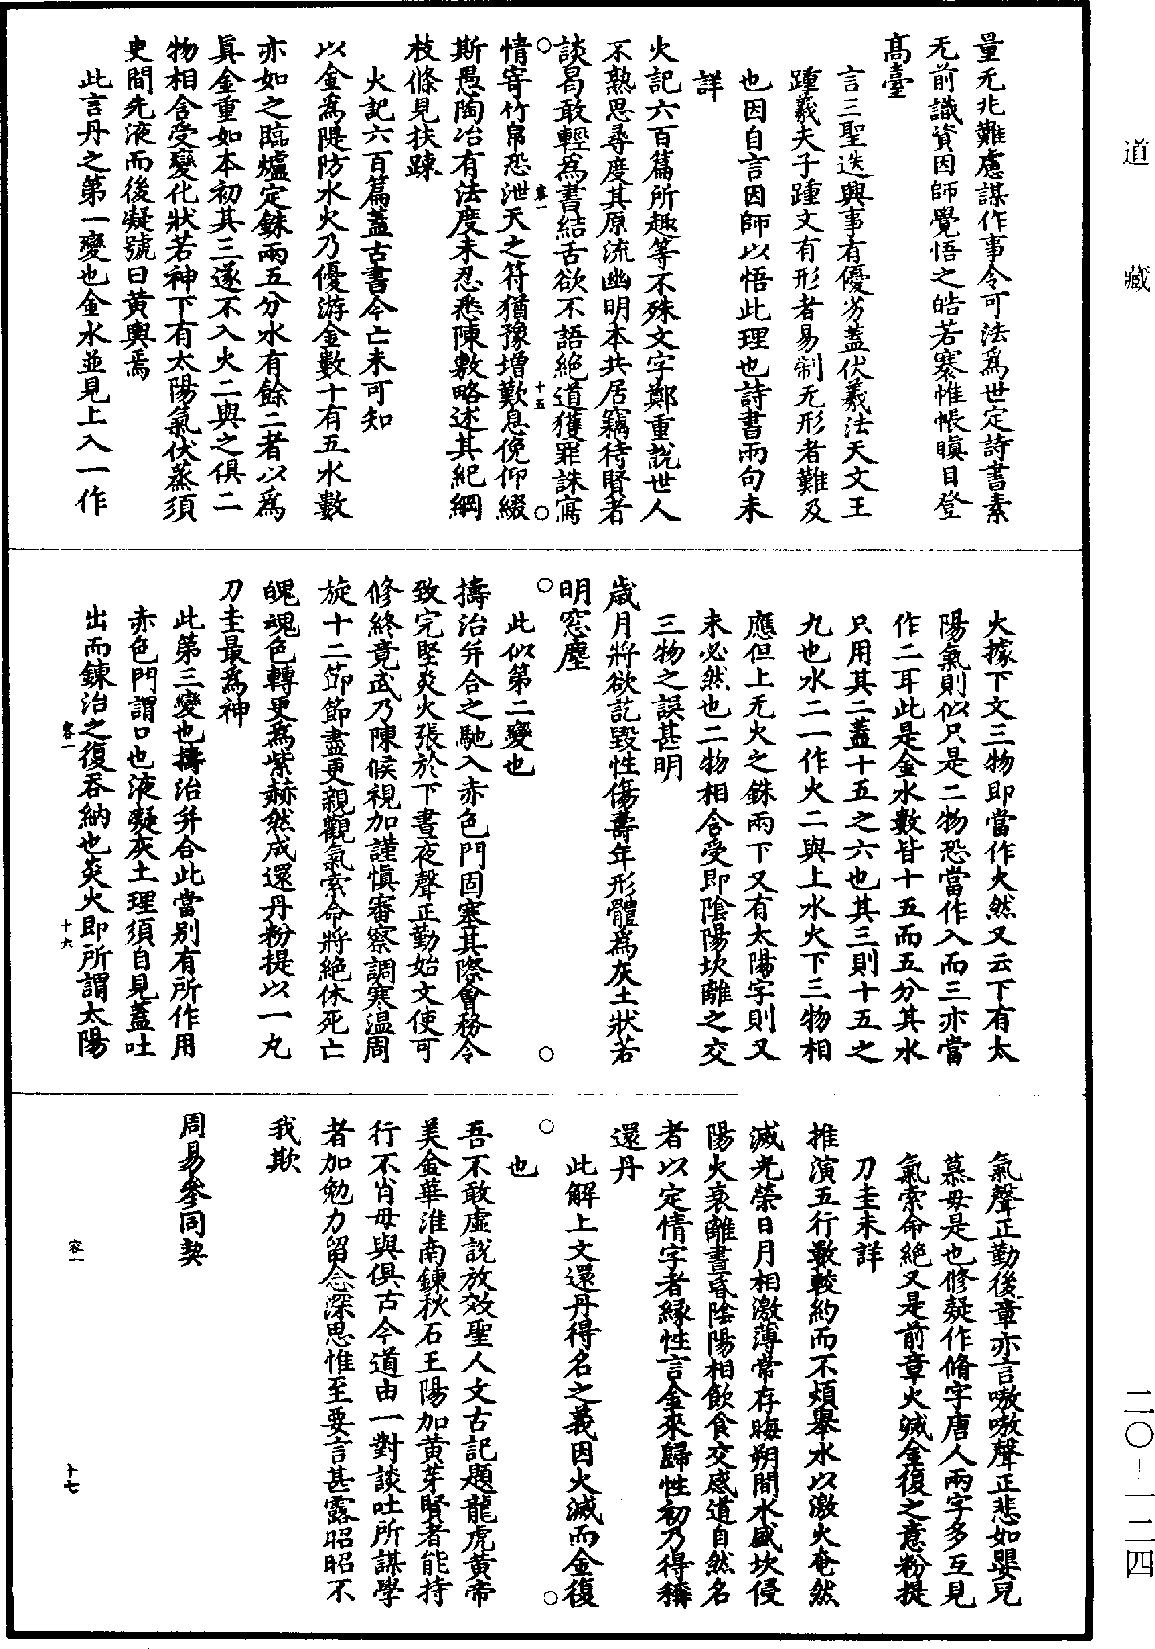 道藏
量无兆難慮謀作事令可法爲世定詩書素
无前識資因師覺悟之皓若褰帷帳瞋目登
高臺
言三聖迭興事有優劣蓋伏羲法天文王
踵羲夫子踵文有形者易制无形者難及
也因自言因師以悟此理也詩書兩句未
詳
火記六百篇所趣等不殊文字鄭重說世人
不熟思尋度其原流幽明本共居竊待賢者
談曷敢輕爲書結舌欲不語絕道獲罪誅寫
容一 十五
情寄竹帛恐泄天之符猶豫增歎息俛仰綴
斯愚陶冶有法度未忍悉陳敷略述其紀綱
枝條見扶踈
火記六百篇蓋古書今亡未可知
以金爲隄防水火乃優游金數十有五水數
亦如之臨爐定銖兩五分水有餘二者以爲
眞金重如本初其三遂不入火二與之俱二
物相含受變化狀若神下有太陽氣伏蒸須
史間先液而後凝號曰黃輿焉
此言丹之第一變也金水並見上入一作
火據下文三物即當作火然又云下有太
陽氣則似只是二物恐當作入而三亦當
作二耳此是金水數皆十五而五分其水
只用其二蓋十五之六也其三則十五之
九也水二一作火二與上水火下三物相
應但上无火之銖兩下又有太陽字則又
未必然也二物相含受即陰陽坎離之交
三物之誤甚明
歲月將欲訖毀性傷壽年形體爲灰土狀若
明窓塵
此似第二變也
擣治并合之馳入赤色門固塞其際會務令
致完堅炎火張於下晝夜聲正勤始文使可
修終竟武乃陳候視加謹愼審察調寒温周
旋十二節節盡更親觀氣索命將絕休死亡
魄魂色轉更爲紫赫然成還丹粉提以一丸
刀圭最爲神
此第三變也擣治并合此當别有所作用
赤色門謂口也液凝灰土理須自見蓋吐
出而鍊治之復吞納也炎火即所謂太陽
容一 十六
氣聲正勤後章亦言嗷嗷聲正悲如嬰兒
慕母是也修疑作脩字唐人兩字多互見
氣索命絕又是前章火滅金復之意粉提
刀圭未詳
推演五行數較約而不煩舉水以激火奄然
滅光榮日月相激薄常存晦朔間水盛坎侵
陽火衰離晝昏陰陽相飲食交感道自然名
者以定情字者緣性言金來歸性初乃得稱
還丹
此解上文還丹得名之義因火滅而金復
也
吾不敢虛說放效聖人文古記題龍虎黃帝
美金華淮南鍊秋石王陽加黃芽賢者能持
行不肖毋與俱古今道由一對談吐所謀學
者加勉力留念深思惟至要言甚露昭昭不
我欺
周易參同契
容一 十七
二〇-一二四